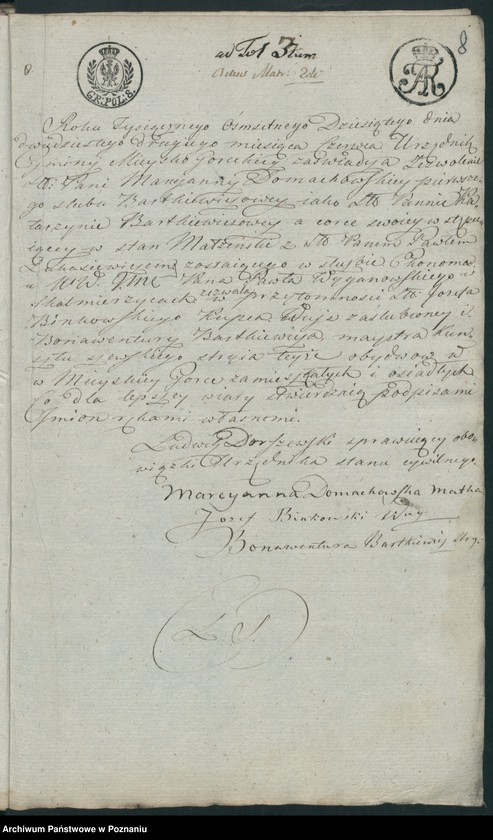 8
ad Tol 3tium
Actus Mat:
GR:POL:8.
AR
Roku Tysiącznego Osmsetnego Dziesiątego dnia
dwudziestego drugiego miesiąca Czerwca Urzędnik
Gminy Mieysko Goreckiey zaświadcza Zezwolenie
Pani Maryanny Domachowskiey pierwsze-
go slubu Bartkiewiczowey iako Pannie Ka-
tarzynie Bartkiewiczowey a corce swoiey wstępu-
iącey w stan Małżeński z Panem Pawłem
Łukasiewiczem zostaiącego w służbie Ekonoma
u WW. JMC Pana Pawła Wyganowskiego w
Skalmierzycach zezwala w przytomności Jozefa
Binkowskiego Kupca Wuja zaslubioney i
Boniawentury Bartkiewicza maystra kun-
sztu szewskiego stryia teyże obydwow w
w Mieyskiey Gorce zamieszkałych i osiadłych
Co dla lepszey wiary stwierdzaią podpisami
Imion rękami własnemi.
Ludwig Dorszewski sprawuiący obo-
wiązki Urzędnika stanu cywilnego.
Maryanna Domachowska Matka
Jozef Binkowski Wuy
Bonawentura Bartkiewicz Stry
L S.
Archiwum Państwowe w Poznaniu